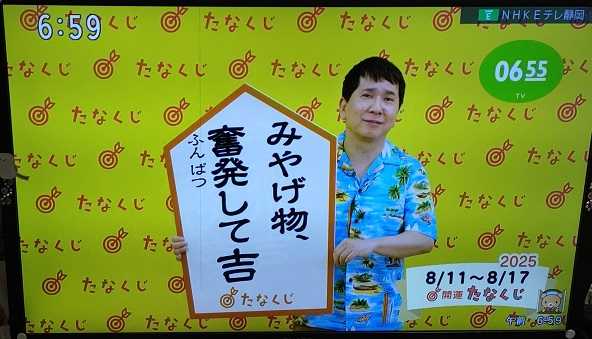 6:59
NHKEテレ静岡
0655
TV
みやげ物、
奮発して吉
ふんぱつ
たなくじ
2025
8/11～8/17
開運 たなくじ
午前 6:59
たなくじ